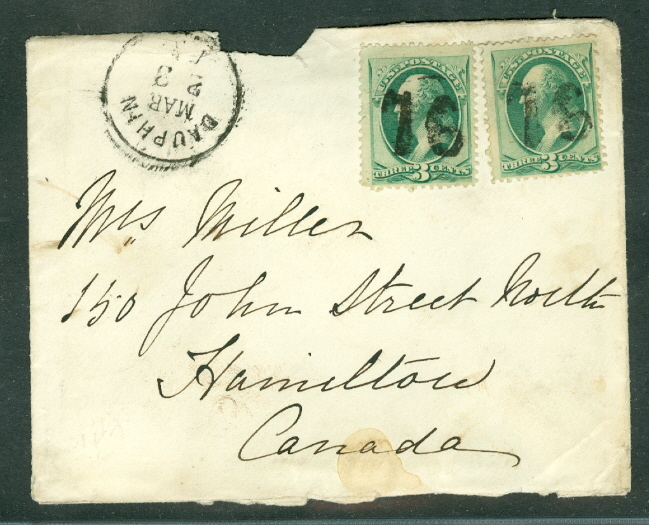 DAUPHIN
MAR
23
U.S. POSTAGE
76
THREE 3 CENTS
U.S. POSTAGE
76
THREE 3 CENTS
Mrs Miller
150 John Street North
Hamilton
Canada